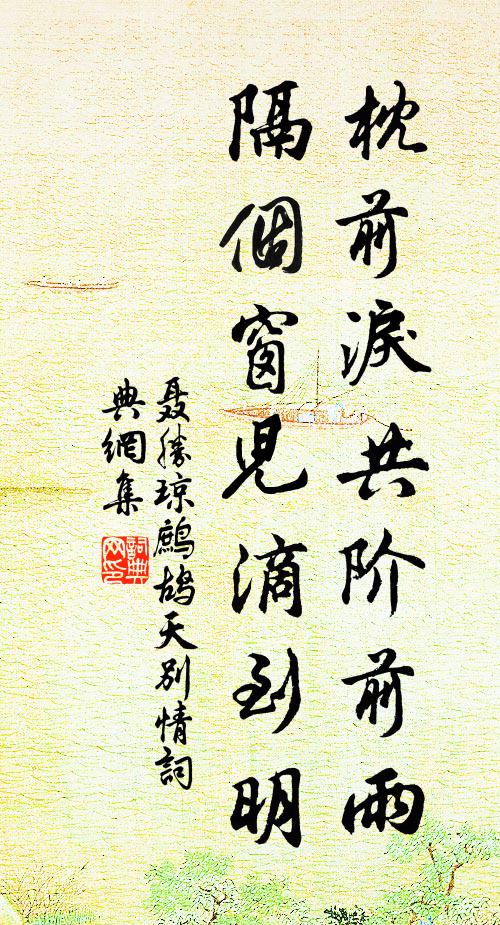 枕前淚共阶前雨
隔個窗兒滴到明
聂勝琼鷓鸪天别情詞
典網集
詞典网印